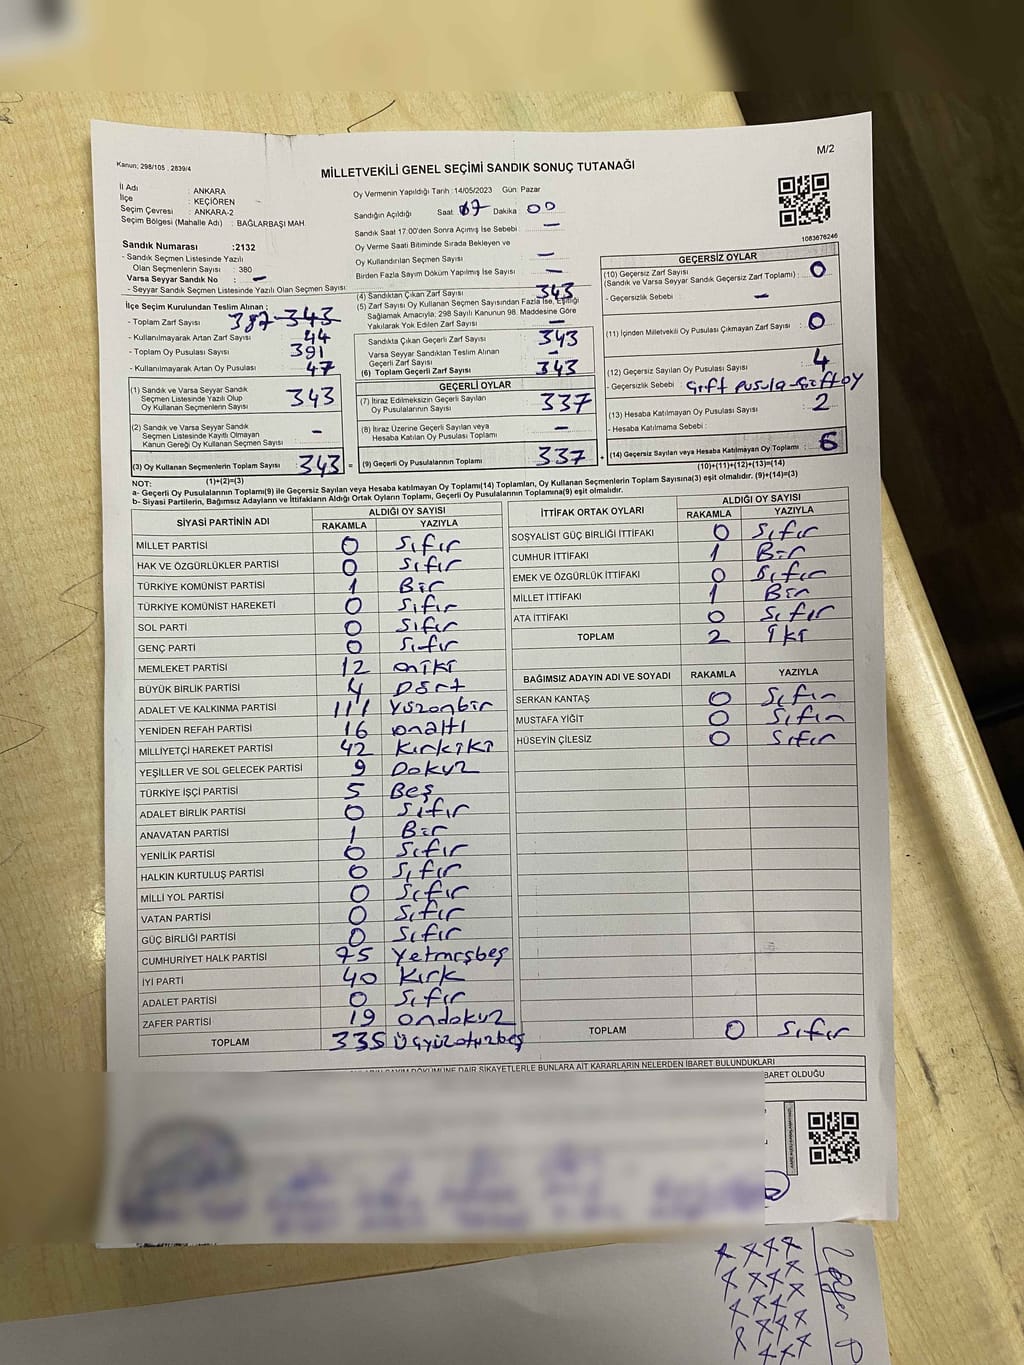 M/2
Kanun; 298/105 , 2839/4
MİLLETVEKİLİ GENEL SEÇİMİ SANDIK SONUÇ TUTANAĞI
İl Adı : ANKARA
İlçe : KEÇİÖREN
Seçim Çevresi : ANKARA-2
Seçim Bölgesi (Mahalle Adı) : BAĞLARBAŞI MAH.
Sandık Numarası :2132
- Sandık Seçmen Listesinde Yazılı
Olan Seçmenlerin Sayısı : 380
Varsa Seyyar Sandık No : –
- Seyyar Sandık Seçmen Listesinde Yazılı Olan Seçmen Sayısı:
Oy Vermenin Yapıldığı Tarih :14/05/2023 Gün: Pazar
Sandığın Açıldığı Saat: 17 Dakika 00
Sandık Saat 17:00'den Sonra Açımış İse Sebebi : –
Oy Verme Saati Bitiminde Sırada Bekleyen ve
Oy Kullandırılan Seçmen Sayısı –
Birden Fazla Sayım Döküm Yapılmış İse Sayısı –
1083676246
İlçe Seçim Kurulundan Teslim Alınan :
- Toplam Zarf Sayısı 387 343
- Kullanılmayarak Artan Zarf Sayısı 44
- Toplam Oy Pusulası Sayısı 391
- Kullanılmayarak Artan Oy Pusulası 47
(1) Sandık ve Varsa Seyyar Sandık
Seçmen Listesinde Yazılı Olup
Oy Kullanan Seçmenlerin Sayısı 343
(2) Sandık ve Varsa Seyyar Sandık
Seçmen Listesinde Kayıtlı Olmayan
Kanun Gereği Oy Kullanan Seçmen Sayısı –
(3) Oy Kullanan Seçmenlerin Toplam Sayısı 343 =
(1)+(2)=(3)
(4) Sandıktan Çıkan Zarf Sayısı 343
(5) Zarf Sayısı Oy Kullanan Seçmen Sayısından Fazla İse, Eşitliği
Sağlamak Amacıyla; 298 Sayılı Kanunun 98. Maddesine Göre
Yakılarak Yok Edilen Zarf Sayısı –
Sandıkta Çıkan Geçerli Zarf Sayısı 343
Varsa Seyyar Sandıktan Teslim Alınan
Geçerli Zarf Sayısı –
(6) Toplam Geçerli Zarf Sayısı 343
GEÇERLİ OYLAR
(7) İtiraz Edilmeksizin Geçerli Sayılan
Oy Pusulalarının Sayısı 337
(8) İtiraz Üzerine Geçerli Sayılan veya
Hesaba Katılan Oy Pusulası Toplamı –
(9) Geçerli Oy Pusulalarının Toplamı 337 +
GEÇERSİZ OYLAR
(10) Geçersiz Zarf Sayısı
(Sandık ve Varsa Seyyar Sandık Geçersiz Zarf Toplamı) : 0
- Geçersizlik Sebebi : –
(11) İçinden Milletvekili Oy Pusulası Çıkmayan Zarf Sayısı : 0
(12) Geçersiz Sayılan Oy Pusulası Sayısı : 4
- Geçersizlik Sebebi : Çift pusula-çift oy
(13) Hesaba Katılmayan Oy Pusulası Sayısı : 2
- Hesaba Katılmama Sebebi :
(14) Geçersiz Sayılan veya Hesaba Katılmayan Oy Toplamı : 6
(10)+(11)+(12)+(13)=(14)
NOT:
a- Geçerli Oy Pusulalarının Toplamı(9) ile Geçersiz Sayılan veya Hesaba katılmayan Oy Toplamı(14) Toplamları, Oy Kullanan Seçmenlerin Toplam Sayısına(3) eşit olmalıdır. (9)+(14)=(3)
b- Siyasi Partilerin, Bağımsız Adayların ve İttifakların Aldığı Ortak Oyların Toplamı, Geçerli Oy Pusulalarının Toplamına(9) eşit olmalıdır.
SİYASİ PARTİNİN ADI ALDIĞI OY SAYISI
RAKAMLA YAZIYLA
MİLLET PARTİSİ 0 Sıfır
HAK VE ÖZGÜRLÜKLER PARTİSİ 0 Sıfır
TÜRKİYE KOMÜNİST PARTİSİ 1 Bir
TÜRKİYE KOMÜNİST HAREKETİ 0 Sıfır
SOL PARTİ 0 Sıfır
GENÇ PARTİ 0 Sıfır
MEMLEKET PARTİSİ 12 oniki
BÜYÜK BİRLİK PARTİSİ 4 Dört
ADALET VE KALKINMA PARTİSİ 111 Yüzonbir
YENİDEN REFAH PARTİSİ 16 onaltı
MİLLİYETÇİ HAREKET PARTİSİ 42 Kırkiki
YEŞİLLER VE SOL GELECEK PARTİSİ 9 Dokuz
TÜRKİYE İŞÇİ PARTİSİ 5 Beş
ADALET BİRLİK PARTİSİ 0 Sıfır
ANAVATAN PARTİSİ 1 Bir
YENİLİK PARTİSİ 0 Sıfır
HALKIN KURTULUŞ PARTİSİ 0 Sıfır
MİLLİ YOL PARTİSİ 0 Sıfır
VATAN PARTİSİ 0 Sıfır
GÜÇ BİRLİĞİ PARTİSİ 0 Sıfır
CUMHURİYET HALK PARTİSİ 75 Yetmişbeş
İYİ PARTİ 40 Kırk
ADALET PARTİSİ 0 Sıfır
ZAFER PARTİSİ 19 ondokuz
TOPLAM 335 Üçyüzotuzbeş
İTTİFAK ORTAK OYLARI ALDIĞI OY SAYISI
RAKAMLA YAZIYLA
SOSYALİST GÜÇ BİRLİĞİ İTTİFAKI 0 Sıfır
CUMHUR İTTİFAKI 1 Bir
EMEK VE ÖZGÜRLÜK İTTİFAKI 0 Sıfır
MİLLET İTTİFAKI 1 Bir
ATA İTTİFAKI 0 Sıfır
TOPLAM 2 iki
BAĞIMSIZ ADAYIN ADI VE SOYADI RAKAMLA YAZIYLA
SERKAN KANTAŞ 0 Sıfır
MUSTAFA YİĞİT 0 Sıfır
HÜSEYİN ÇİLESİZ 0 Sıfır
TOPLAM 0 Sıfır
SAYIM DÖKÜMÜNE DAİR ŞİKAYETLERLE BUNLARA AİT KARARLARIN NELERDEN İBARET BULUNDUKLARI
BARET OLDUĞU
Zafer P